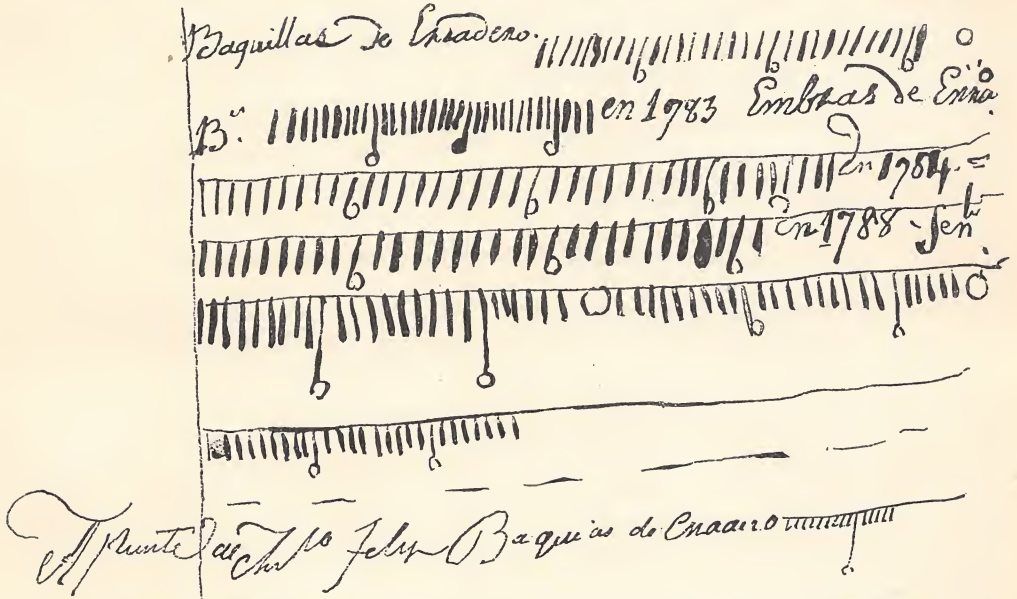 Baquillas de Enradero.
B.ª en 1783 Embras de Enrra.
En 1784. =
en 1788
Apunte de Felip Baquias de Enradero